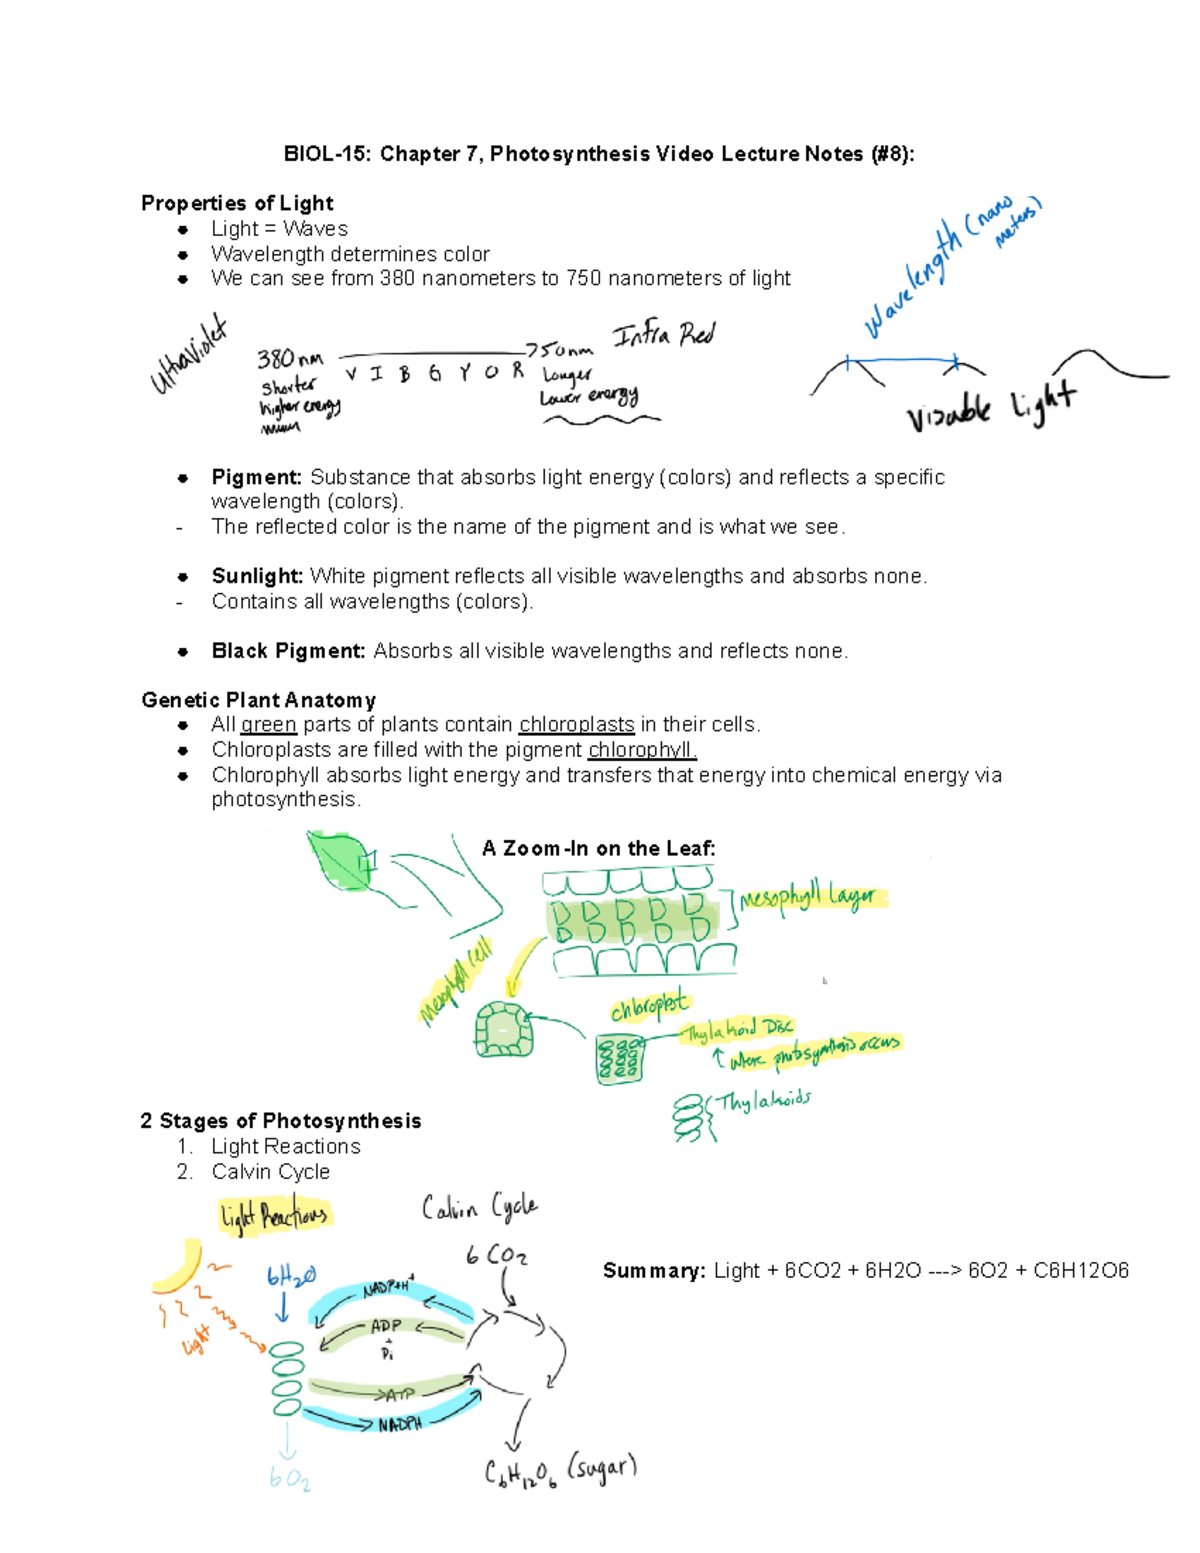 BIOL-15: Chapter 7, Photosynthesis Video Lecture Notes (#8):
Properties of Light
● Light = Waves
● Wavelength determines color
● We can see from 380 nanometers to 750 nanometers of light
Wavelength (nano
meters)
Ultraviolet
380nm
Shorter
higher energy
V I B G Y O R
750nm
Longer
Lower energy
Infra Red
Visable Light
● Pigment: Substance that absorbs light energy (colors) and reflects a specific
wavelength (colors).
- The reflected color is the name of the pigment and is what we see.
● Sunlight: White pigment reflects all visible wavelengths and absorbs none.
- Contains all wavelengths (colors).
● Black Pigment: Absorbs all visible wavelengths and reflects none.
Genetic Plant Anatomy
● All green parts of plants contain chloroplasts in their cells.
● Chloroplasts are filled with the pigment chlorophyll.
● Chlorophyll absorbs light energy and transfers that energy into chemical energy via
photosynthesis.
A Zoom-In on the Leaf:
Mesophyll Layer
Mesophyll cell
chloroplast
Thylakoid Disc
↑ where photosynthesis occurs
Thylakoids
2 Stages of Photosynthesis
1. Light Reactions
2. Calvin Cycle
Light Reactions
Calvin Cycle
6 CO2
6H2O
Summary: Light + 6CO2 + 6H2O ---> 6O2 + C6H12O6
NADP+H+
Light
ADP
+
Pi
ATP
NADPH
6O2
C6H12O6 (sugar)